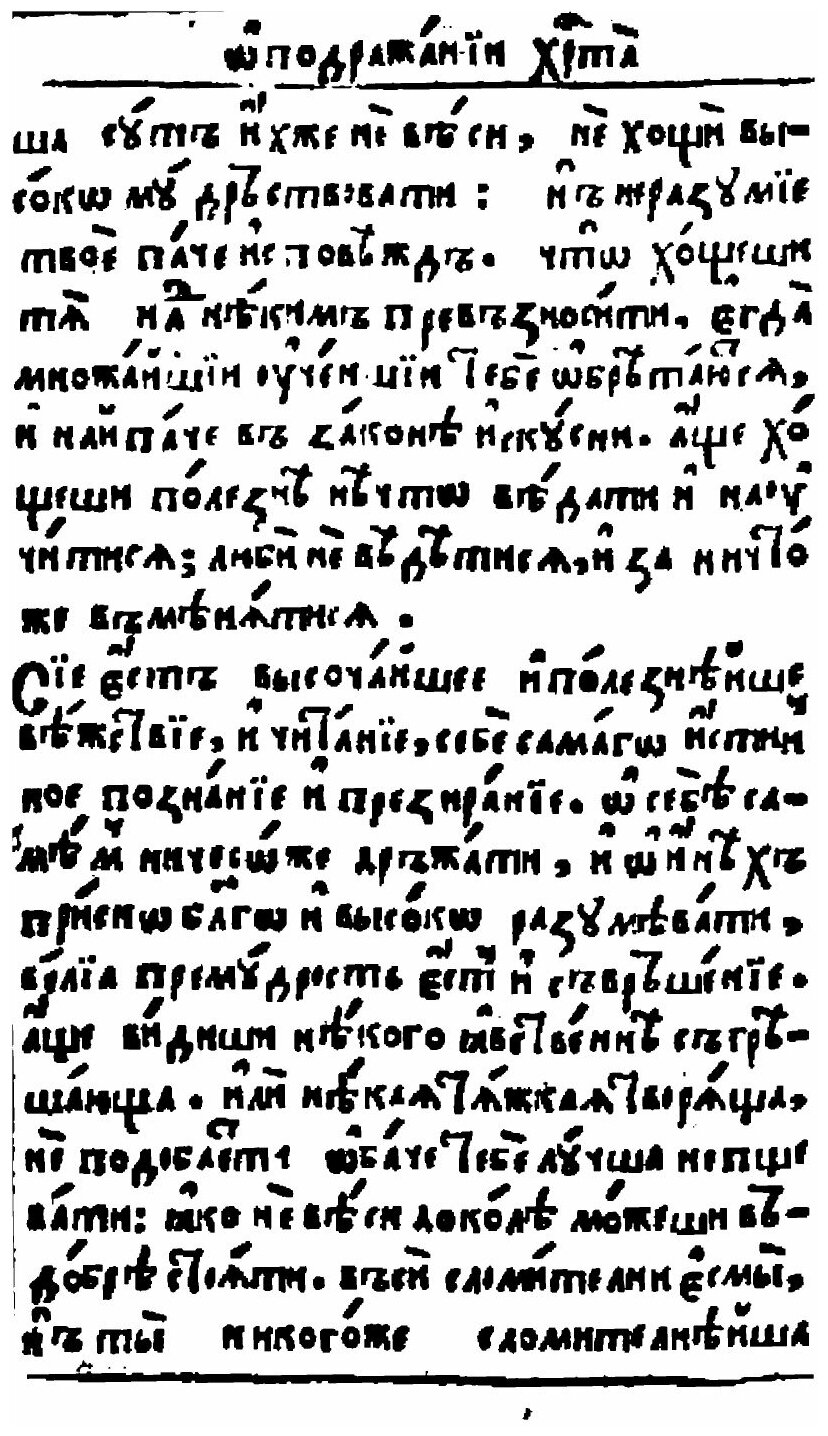 Ѡ҆ подража́нїи хрⷭ҇та̀
ша сꙋ́ть и҆́хже не вѣ́си, не хощѝ вы-
со́кѡ мꙋ́дръствовати: и҆ъ неразꙋмїе
твоѐ па́че и҆сповѣ́ждь. что̀ хо́щеши
тѧ̀ над̾ нѣ́кимъ превъзноси́ти, є҆гда̀
множа́йшїи ѹ҆че́ннїи тебѐ ѡ҆брѣта́ютсѧ,
и҆ наипа́че въ зако́нѣ и҆скꙋ́сни. а҆́ще хо́
щеши поле́знѣ нѣ́что вѣ́дати и҆ наꙋ
чи́тисѧ; любѝ не вѣ́дѣтисѧ, и҆ за ничто́
же въмѣнѧ́тисѧ.
Сїе є҆́сть высоча́йшее и҆ поле́знѣйше
вѣ́жествїе, и҆ чита́нїе, себѐ самаго̀ и҆́стин
ное позна́нїе и҆ презира́нїе. ѡ҆ себѣ̀ са-
мѣ́м ничесо́же држа́ти, и҆ ѡ҆ и҆нѣ́хъ
при́снѡ бл҃гѡ и҆ высо́кѡ разꙋмѣва́ти,
ве́лїа премꙋ́дрость є҆́сть и҆ съврше́нїе.
а҆́ще ви́диши нѣ́кого ꙗ҆́вственнѣ съгрѣ-
ша́юща. и҆лѝ нѣ́каѧ тѧ́жкаѧ творѧ́ща,
не подоба́етъ ѡ҆ба́че тебѐ лꙋ́чша непще
ва́ти: ꙗ҆́ко не вѣ́си доко́лѣ мо́жеши въ-
до́брѣ стоѧ́ти. въсѝ сломи́телни є҆смы̀,
и҆ъ ты̀ никого́же сломителнѣ́йша